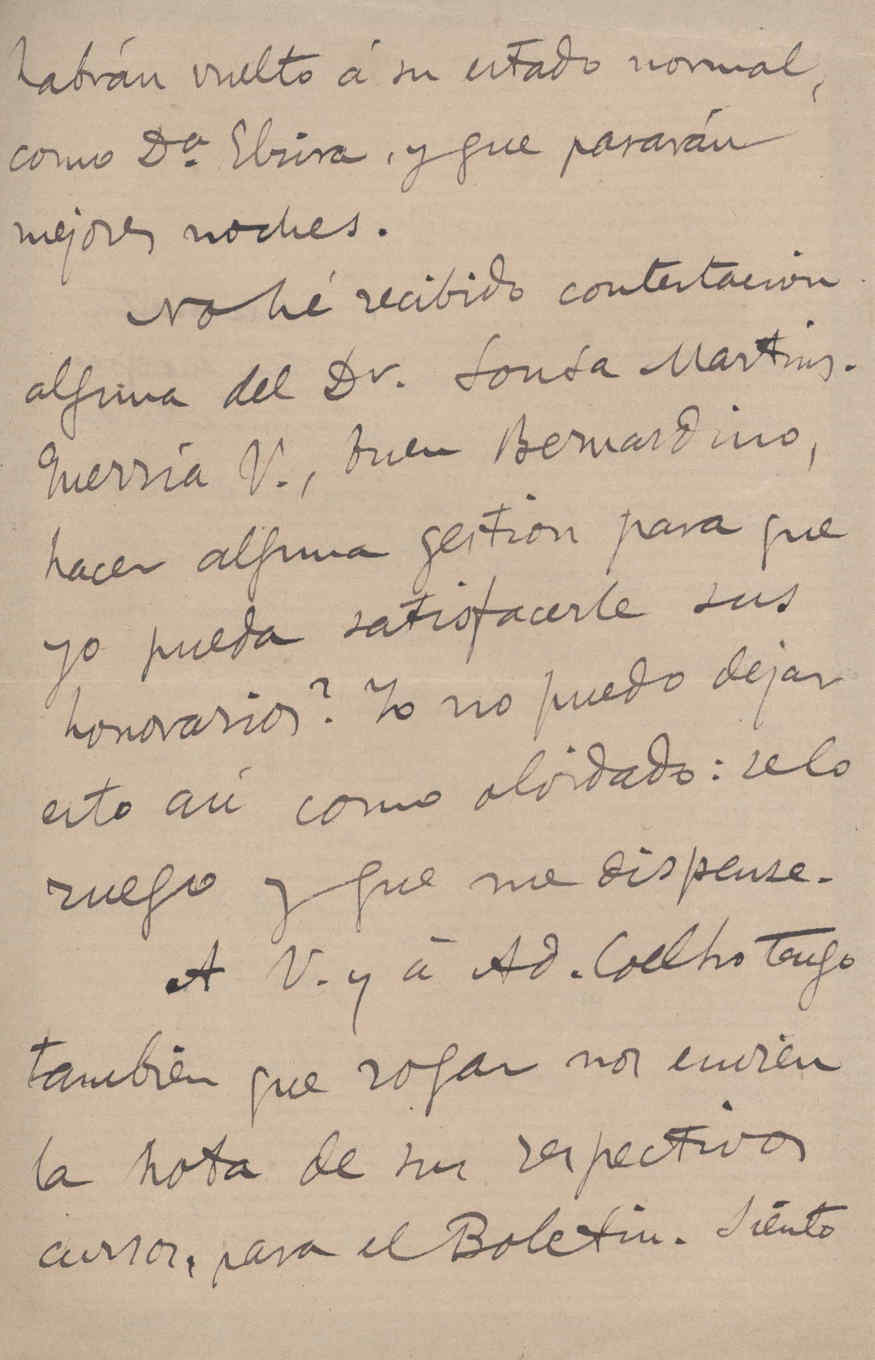 habrán vuelto á su estado normal,
como Dª Elzira, y que pasarán
mejores noches.
No hé recibido contestacion
alguna del Dr. Sousa Martins.
Querría V., buen Bernardino,
hacer alguna gestion para que
yo pueda satisfacerle sus
honorarios? Yo no puedo dejar
esto así como olvidado: se lo
ruego y que me dispense.
A V. y á Ad. Coelho tengo
tambien que rogar nos envien
la nota de sus respectivos
cursos, para el Boletin. Siento